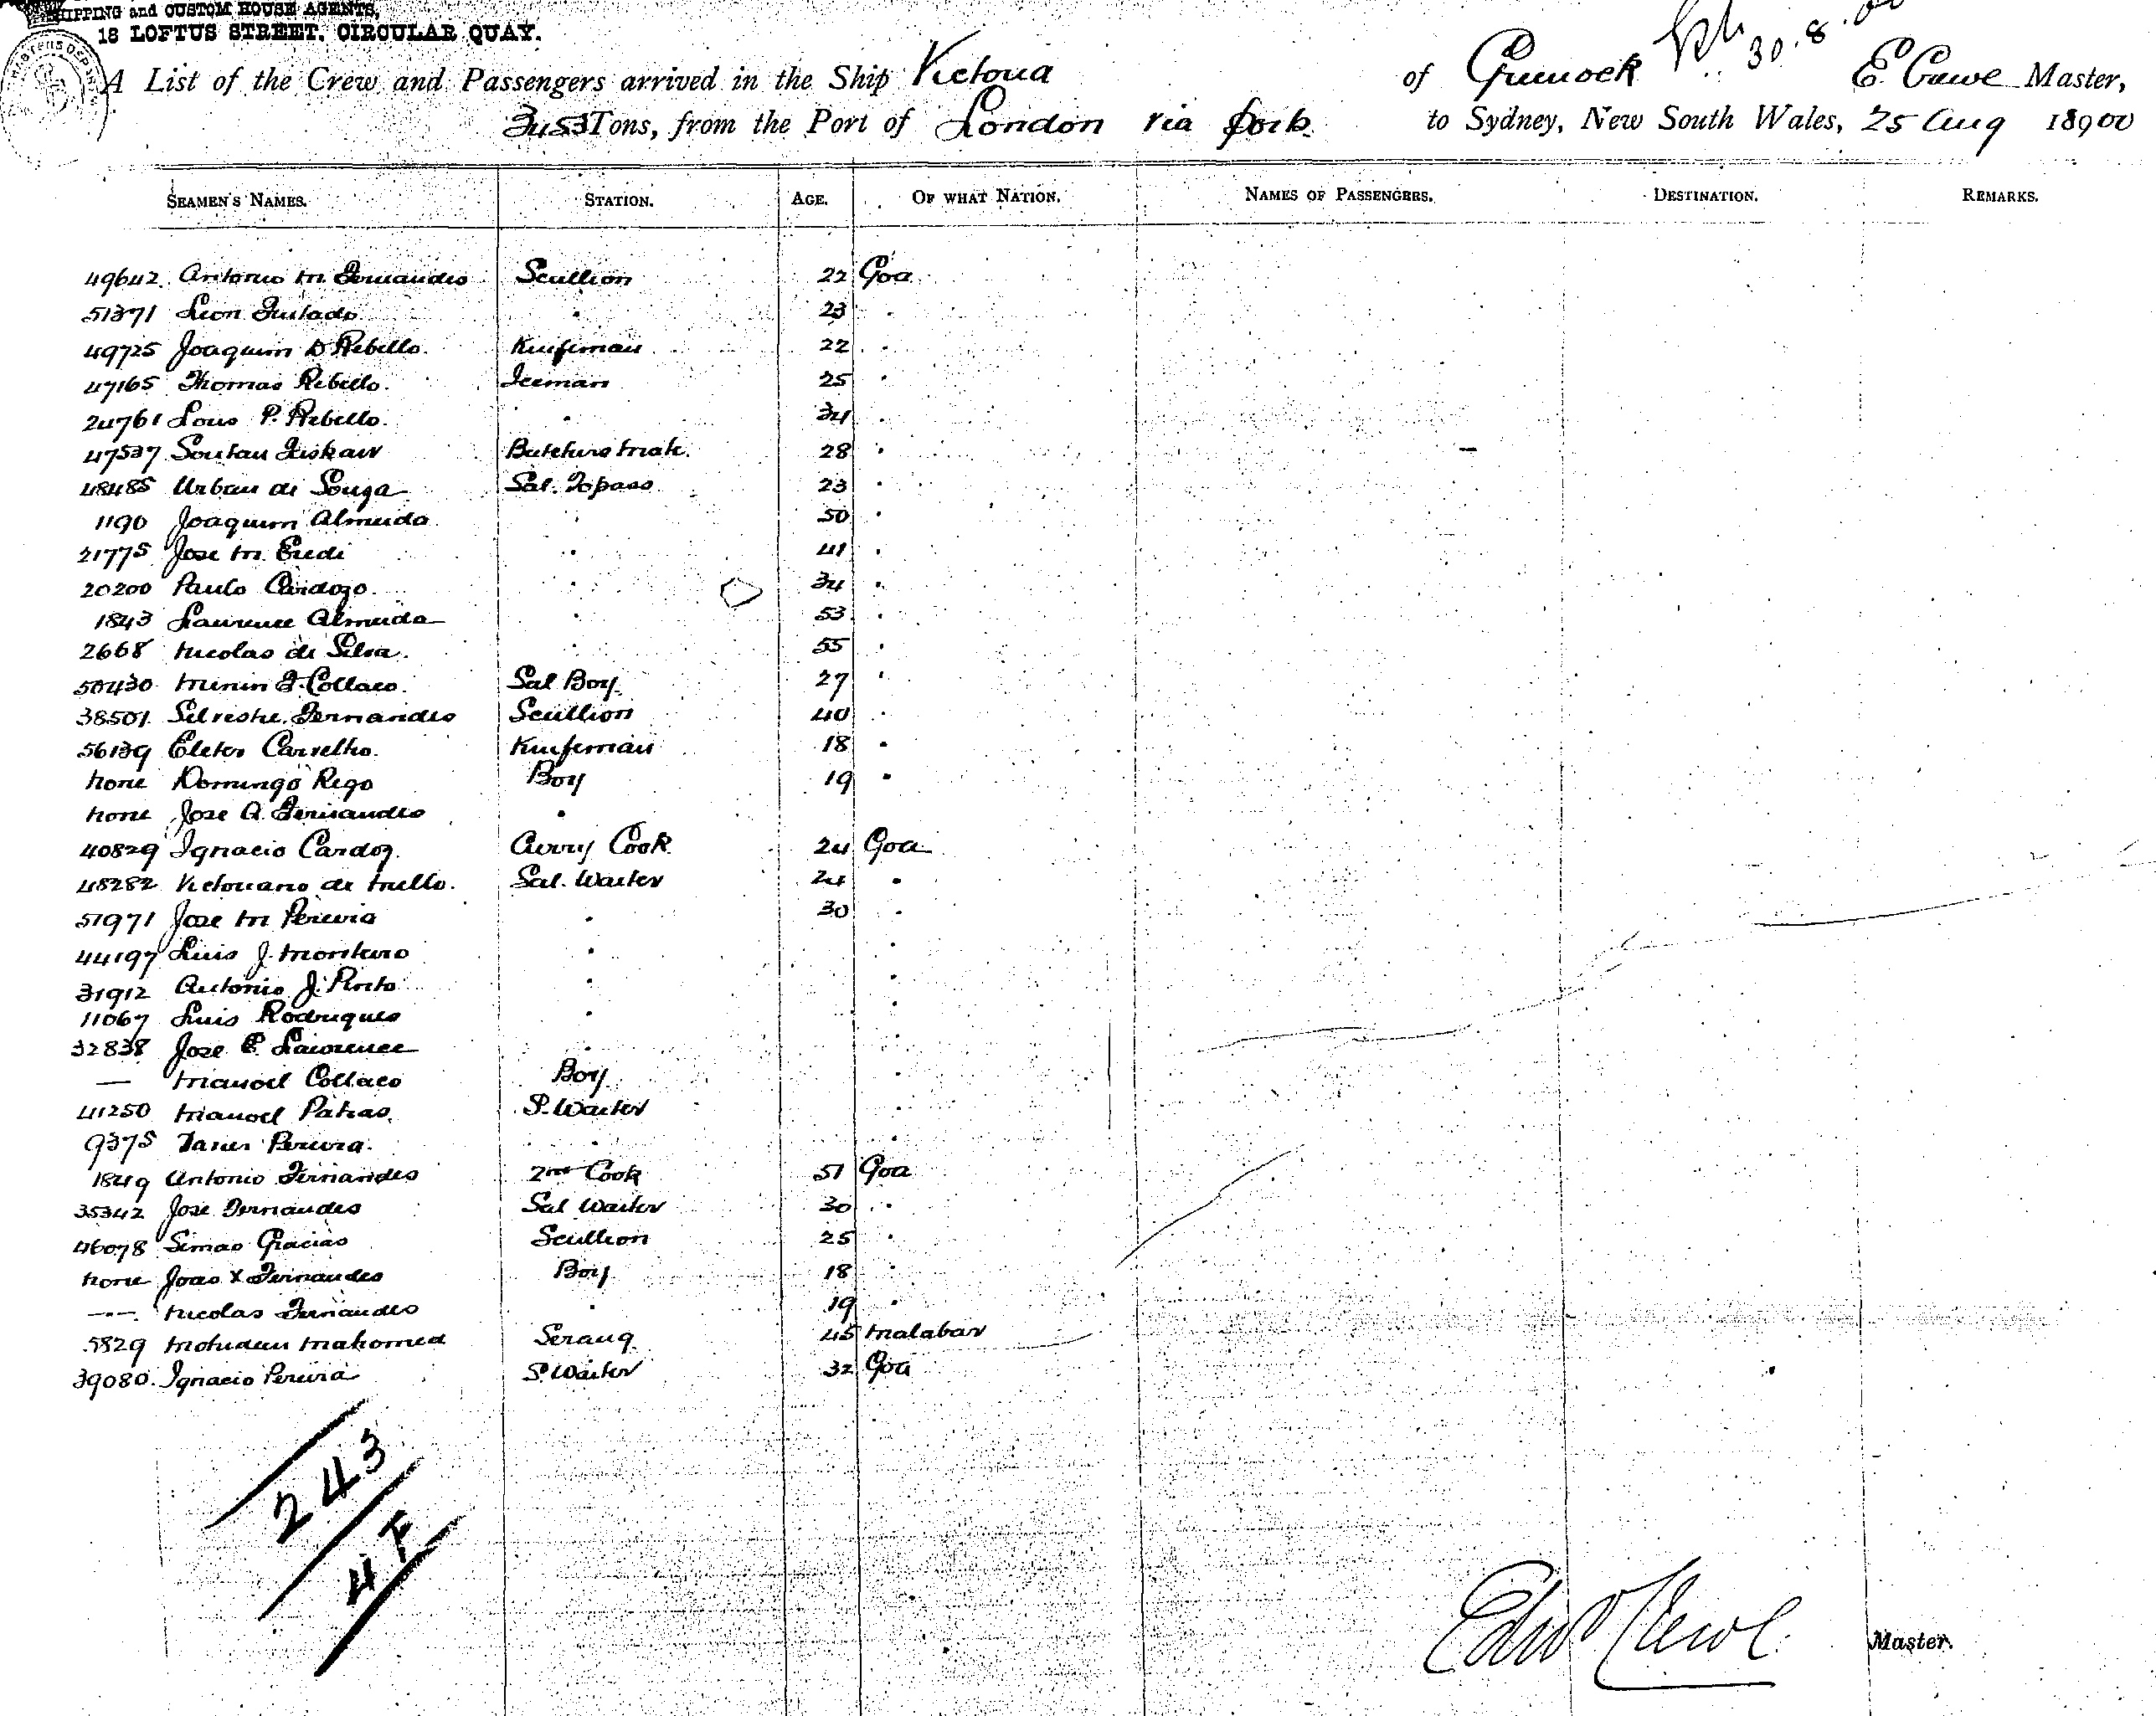 SHIPPING and CUSTOM HOUSE AGENTS,
18 LOFTUS STREET, CIRCULAR QUAY.
30.8.00
A List of the Crew and Passengers arrived in the Ship Victoria of Greenock E Crewe Master,
3453 Tons, from the Port of London via Ports to Sydney, New South Wales, 25 Aug 18900
SEAMEN'S NAMES. STATION. AGE. OF WHAT NATION. NAMES OF PASSENGERS. DESTINATION. REMARKS.
49642 Antonio M. Fernandes Scullion 22 Goa
51371 Leon Furtado " 23 "
49725 Joaquim D Rebello Knifeman 22 "
47165 Thomas Rebello Iceman 25 "
24761 Lous P. Rebello " 34 "
47537 Butchers Mate 28 "
48485 Urban de Souza Sal. Topass 23 "
1190 Joaquim Almeida " 50 "
21775 Jose M. " 41 "
20200 Paulo Cardozo " 34 "
1843 Laurence Almeida " 53 "
2668 Nicolas de Silva " 55 "
50430 F. Collaco Sal Boy 27 "
38501 Silvestre Fernandes Scullion 40 "
56139 Carvelho Knifeman 18 "
None Domingo Rego Boy 19 "
None Jose A. Fernandes "
40829 Ignacio Cardoz Curry Cook 24 Goa
48282 Victoriano de Mello Sal. Waiter 24 "
51971 Jose M Pereira " 30 "
44197 Luis J. Monteiro " "
31912 Antonio J. Pinto " "
11067 Luis Rodrigues " "
32838 Jose P. Lawrence " "
— Manoel Collaco Boy "
41250 Manoel Patras S. Waiter "
9375 Pereira " "
1849 Antonio Fernandes 2nd Cook 51 Goa
35342 Jose Fernandes Sal Waiter 30 "
46078 Simao Gracias Scullion 25 "
None Joao X Fernandes Boy 18 "
—-— Nicolas Fernandes " 19 "
5829 Mohideen Mahomed Serang 45 Malabar
39080 Ignacio Pereira S. Waiter 32 Goa
243
4 F
Edwd Crewe Master.